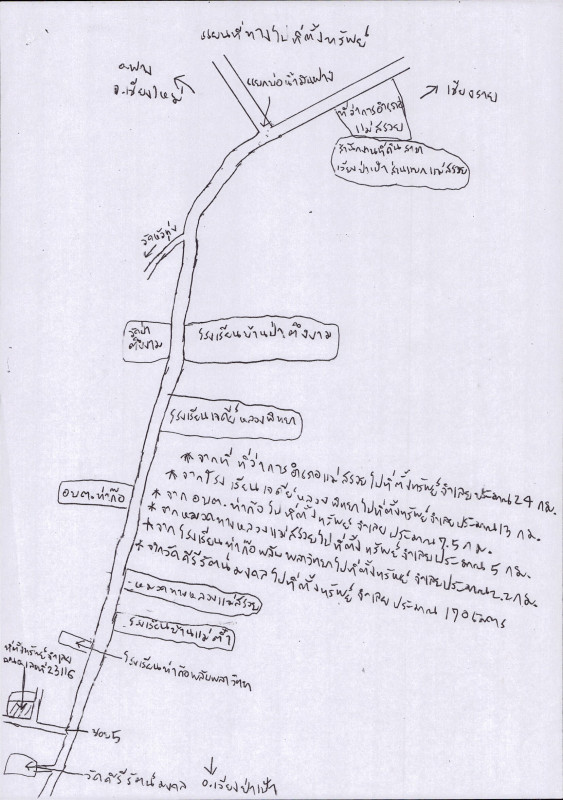 แผนที่ทางไปที่ตั้งทรัพย์
อ.ฝาง
จ.เชียงใหม่
แยกบ่อน้ำมันฝาง
เชียงราย
ที่ว่าการอำเภอ
แม่สรวย
สำนักงานที่ดิน
เวียงป่าเป้า ส่วนแยกแม่สรวย
วัดหัวทุ่ง
วัดป่า
ตึงงาม
โรงเรียนบ้านป่าตึงงาม
โรงเรียนเจดีย์หลวงพิทยา
อบต.ท่าก๊อ
* จากที่ ที่ว่าการอำเภอแม่สรวยไปที่ตั้งทรัพย์จำเลย ประมาณ 24 กม.
* จากโรงเรียนเจดีย์หลวงพิทยาไปที่ตั้งทรัพย์จำเลยประมาณ 13 กม.
* จาก อบต.ท่าก๊อ ไปที่ตั้งทรัพย์ จำเลย ประมาณ 7.5 กม.
* จากหมวดทางหลวงแม่สรวยไปที่ตั้งทรัพย์จำเลยประมาณ 5 กม.
* จากโรงเรียนท่าก๊อพลับพลาวิทยาไปที่ตั้งทรัพย์ จำเลยประมาณ 2.2 กม.
* จากวัดคีรีรัตน์มงคลไปที่ตั้งทรัพย์ จำเลย ประมาณ 170 เมตร
หมวดทางหลวงแม่สรวย
โรงเรียนบ้านแม่ต๋ำ
โรงเรียนท่าก๊อพลับพลาวิทยา
ที่ตั้งทรัพย์จำเลย
เลขที่ 23116
ซอย 5
วัดคีรีรัตน์มงคล
อ.เวียงป่าเป้า